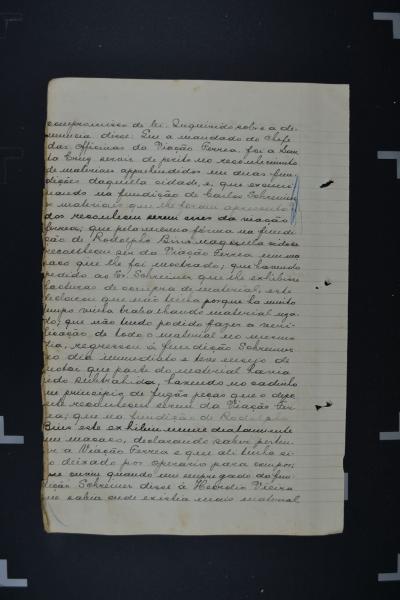 compromisso da lei. Inquirido sobre a de-
nuncia disse: Que a mandado do Chefe
das officinas da Viação Ferrea foi a San-
ta Cruz servir de perito no reconhecimento
de materiaes apprehendidos em duas fun-
dições daquella cidade, e que exami-
nando na fundição de Carlos Schreiner
o material que lhe foram apresenta-
dos reconheceu serem esses da viação
ferrea; que pela mesma fórma na fundi-
ção de Rodolpho
reconheceu ser da Viação Ferrea um ma-
caco que lhe foi mostrado; que havendo
pedido ao Sr. Schreiner que lhe exhibisse
facturas de compra de material, este
declarou que não tinha porque ha muito
tempo vinha trabalhando material usa-
do; que não tendo podido fazer a veri-
ficação de todo o material no mesmo
dia, regressou á fundição Schreiner
no dia immediato e teve ensejo de
notar que parte do material havia
sido havendo no cadinho
um principio de fuzão peças que o depo-
ente reconheceu serem da Viação Fer-
rea; que na fundição de Rodolpho
este exhibiu immediatamente
um macaco, declarando saber perten-
cer a Viação Ferrea e que ali tinha si-
do deixado por operario para compor;
que ouviu quando um empregado da fun-
dição Schreiner disse á Vieira
que sabia onde existia mais material